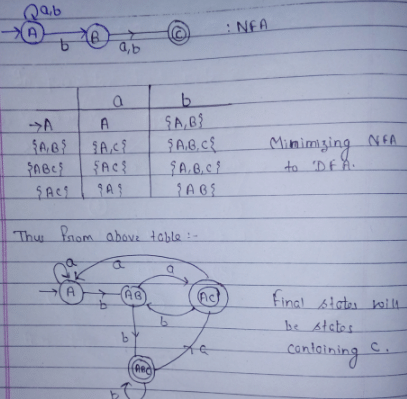 a,b
A b B a,b C : NFA
a b
→A A {A,B}
{A,B} {A,C} {A,B,C}
{ABC} {AC} {A,B,C}
{AC} {A} {AB}
Mimimizing NFA
to DFA.
Thus from above table:-
a a a
A b AB b AC
b a
ABC
b
Final states will
be states
containing C.